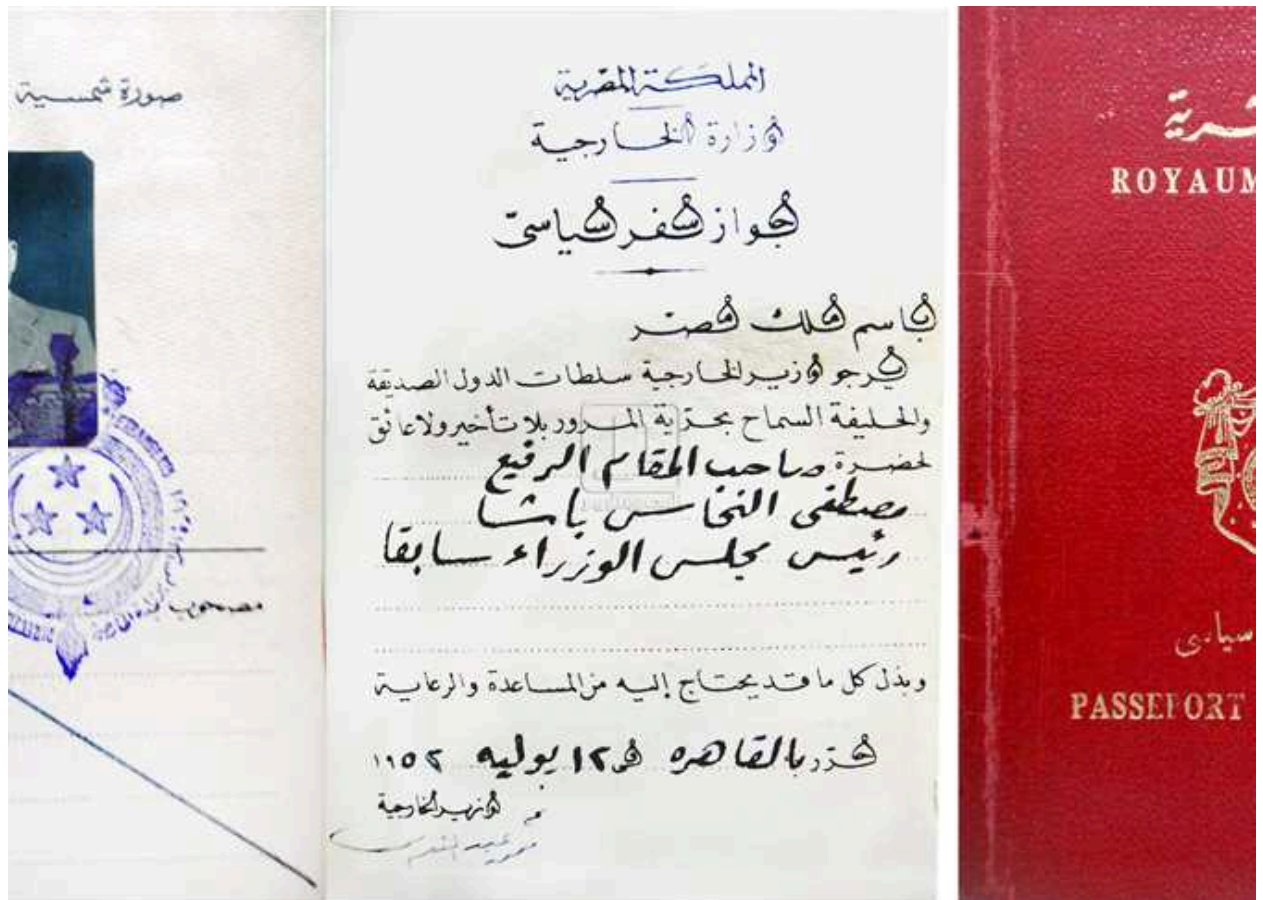 صورة شمسية
المملكة المصرية
وزارة الخارجية
جواز سفر سياسى
باسم ملك مصر
يرجو وزير الخارجية سلطات الدول الصديقة
والحليفة السماح بحرية المرور بلا تأخير ولا عائق
لحضرة صاحب المقام الرفيع
مصطفى النحاس باشا
رئيس مجلس الوزراء سابقا
وبذل كل ما قد يحتاج إليه من المساعدة والرعاية
حرر بالقاهره فى ١٢ يوليه ١٩٥٢
وزير الخارجية
ROYAUM
سياسى
PASSEPORT